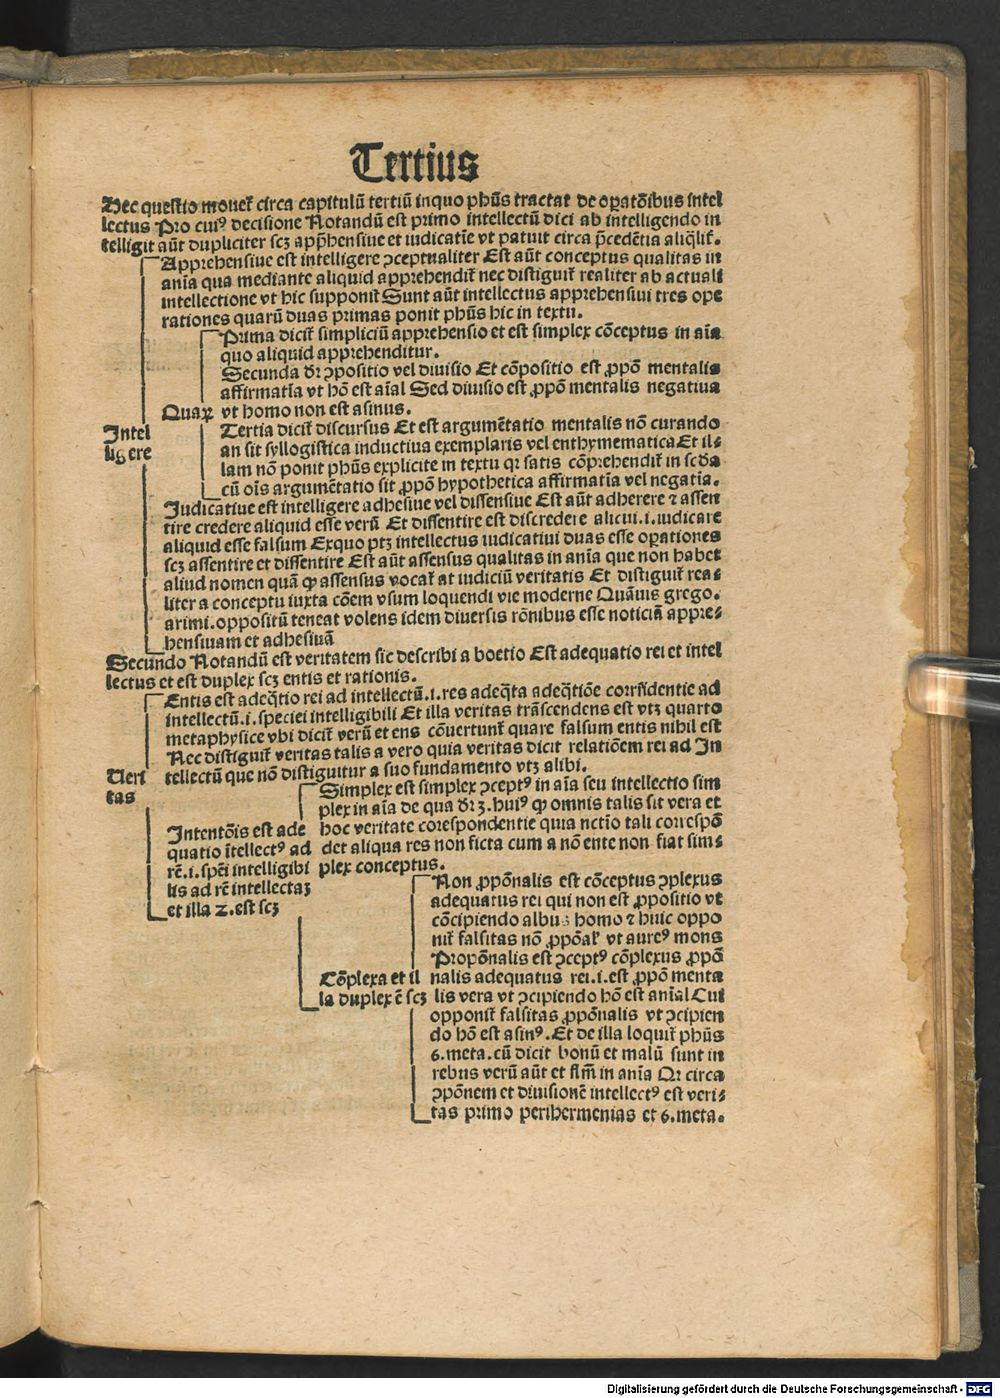 Tertius
Hec questio mouet᷑ circa capitulū tertiū inquo phūs tractat de oꝑatōibus intel
lectus Pro cuiꝰ decisione Notandū est primo intellectū dici ab intelligendo in
telligit aūt dupliciter scꝫ app̄hensiue et iudicatīe vt patuit circa p̄cedētia aliq̄lit᷑.
Apprehensiue est intelligere ↄceptualiter Est aūt conceptus qualitas in
anīa qua mediante aliquid apprehendit᷑ nec distiguit᷑ realiter ab actuali
intellectione vt hic supponit᷑ Sunt aūt intellectus apprehensiui tres ope
rationes quarū duas primas ponit phūs hic in textu.
Prima dicit᷑ simpliciū apprehensio et est simplex cōceptus in aīa
quo aliquid apprehenditur.
Secunda dr̄ ↄpositio vel diuisio Et cōpositio est ꝓpō mentalis
affirmatīa vt hō est aīal Sed diuisio est ꝓpō mentalis negatiua
Quaꝝ vt homo non est asinus.
Intel
ligere
Tertia dicit᷑ discursus Et est argumētatio mentalis nō curando
an sit syllogistica inductiua exemplaris vel enthymematica Et il⸗
lam nō ponit phūs explicite in textu qr satis cōprehendit᷑ in scd̄a
cū oīs argumētatio sit ꝓpō hypothetica affirmatīa vel negatīa.
Iudicatiue est intelligere adhesiue vel dissensiue Est aūt adherere ⁊ assen
tire credere aliquid esse verū Et dissentire est discredere alicui.i.iudicare
aliquid esse falsum Exquo ptꝫ intellectus iudicatiui duas esse oꝑationes
scꝫ assentire et dissentire Est aūt assensus qualitas in anīa que non habet
aliud nomen quā ꝙ assensus vocat᷑ at iudiciū veritatis Et distiguit᷑ rea⸗
liter a conceptu iuxta cōem vsum loquendi vie moderne Quāuis grego.
arimi.oppositū teneat volens idem diuersis rōnibus esse noticiā appre⸗
hensiuam et adhesiuā
Secundo Notandū est veritatem sic describi a boetio Est adequatio rei et intel
lectus et est duplex scꝫ entis et rationis.
Entis est adeq̄tio rei ad intellectū.i.res adeq̄ta adeq̄tiōe corrn̄dentie ad
intellectū.i.speciei intelligibili Et illa veritas trāscendens est vtꝫ quarto
metaphysice vbi dicit᷑ verū et ens cōuertunt᷑ quare falsum entis nihil est
Nec distiguit᷑ veritas talis a vero quia veritas dicit relatiōem rei ad In
tellectū que nō distiguitur a suo fundamento vtꝫ alibi.
Ueri
tas
Simplex est simplex ↄceptꝰ in aīa seu intellectio sim
plex in aīa de qua dr̄ ꝫ.huiꝰ ꝙ omnis talis sit vera et
hoc veritate corespondentie quia nctīo tali correspō
det aliqua res non ficta cum a nō ente non fiat sim⸗
plex conceptus.
Intentōis est ade
quatio ītellectꝰ ad
rē.i.sp̄ei intelligibi
lis ad rē intellectaꝫ
et illa 2.est scꝫ
Non ꝓpōnalis est cōceptus ↄplexus
adequatus rei qui non est ꝓpositio vt
cōcipiendo albuꝫ homo ⁊ huic oppo
nit᷑ falsitas nō ꝓpōal᷑ vt aureꝰ mons
Propōnalis est ↄceptꝰ cōplexus ꝓpō
nalis adequatus rei.i.est ꝓpō menta
lis vera vt ↄcipiendo hō est anīal Cui
opponit᷑ falsitas ꝓpōnalis vt ↄcipien
do hō est asinꝰ.Et de illa loquit᷑ phūs
6.meta.cū dicit bonū et malū sunt in
rebus verū aūt et flm̄ in anīa Qr circa
ↄpōnem et diuisionē intellectꝰ est veri⸗
tas primo perihermenias et 6.meta.
Cōplexa et il
la duplex ē scꝫ
Digitalisierung gefördert durch die Deutsche Forschungsgemeinschaft - DFG